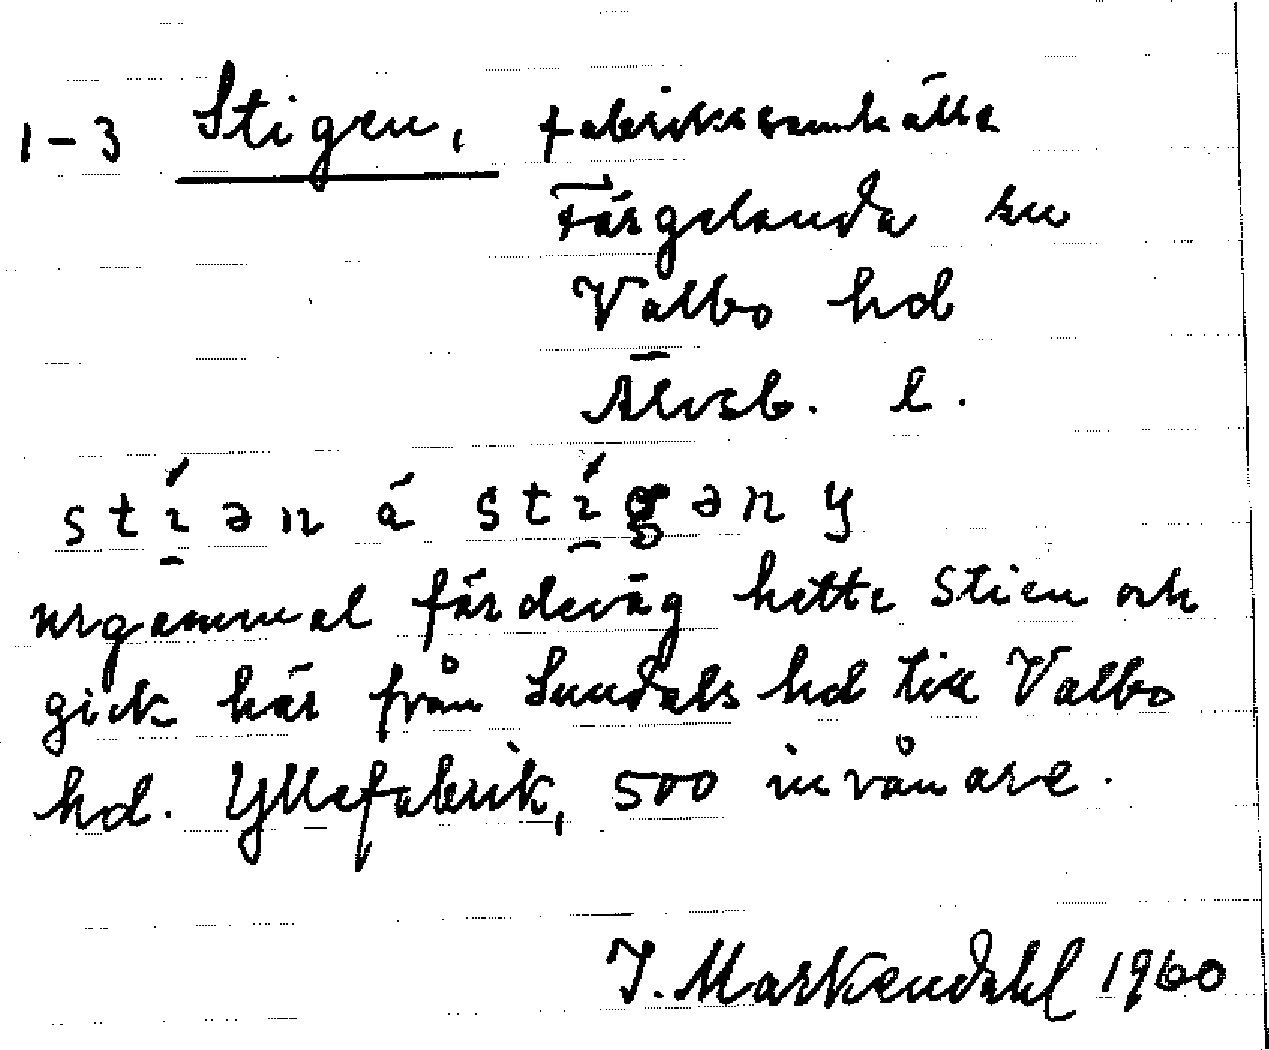 1-3 Stigen, fabrikssamhälle
Färgelanda sn
Valbo hd
Älvsb. l.
stíən á stígən y
urgammal färdeväg hette Stien och
gick här från Sundals hd till Valbo
hd. Yllefabrik, 500 invånare.
J. Markendahl 1960